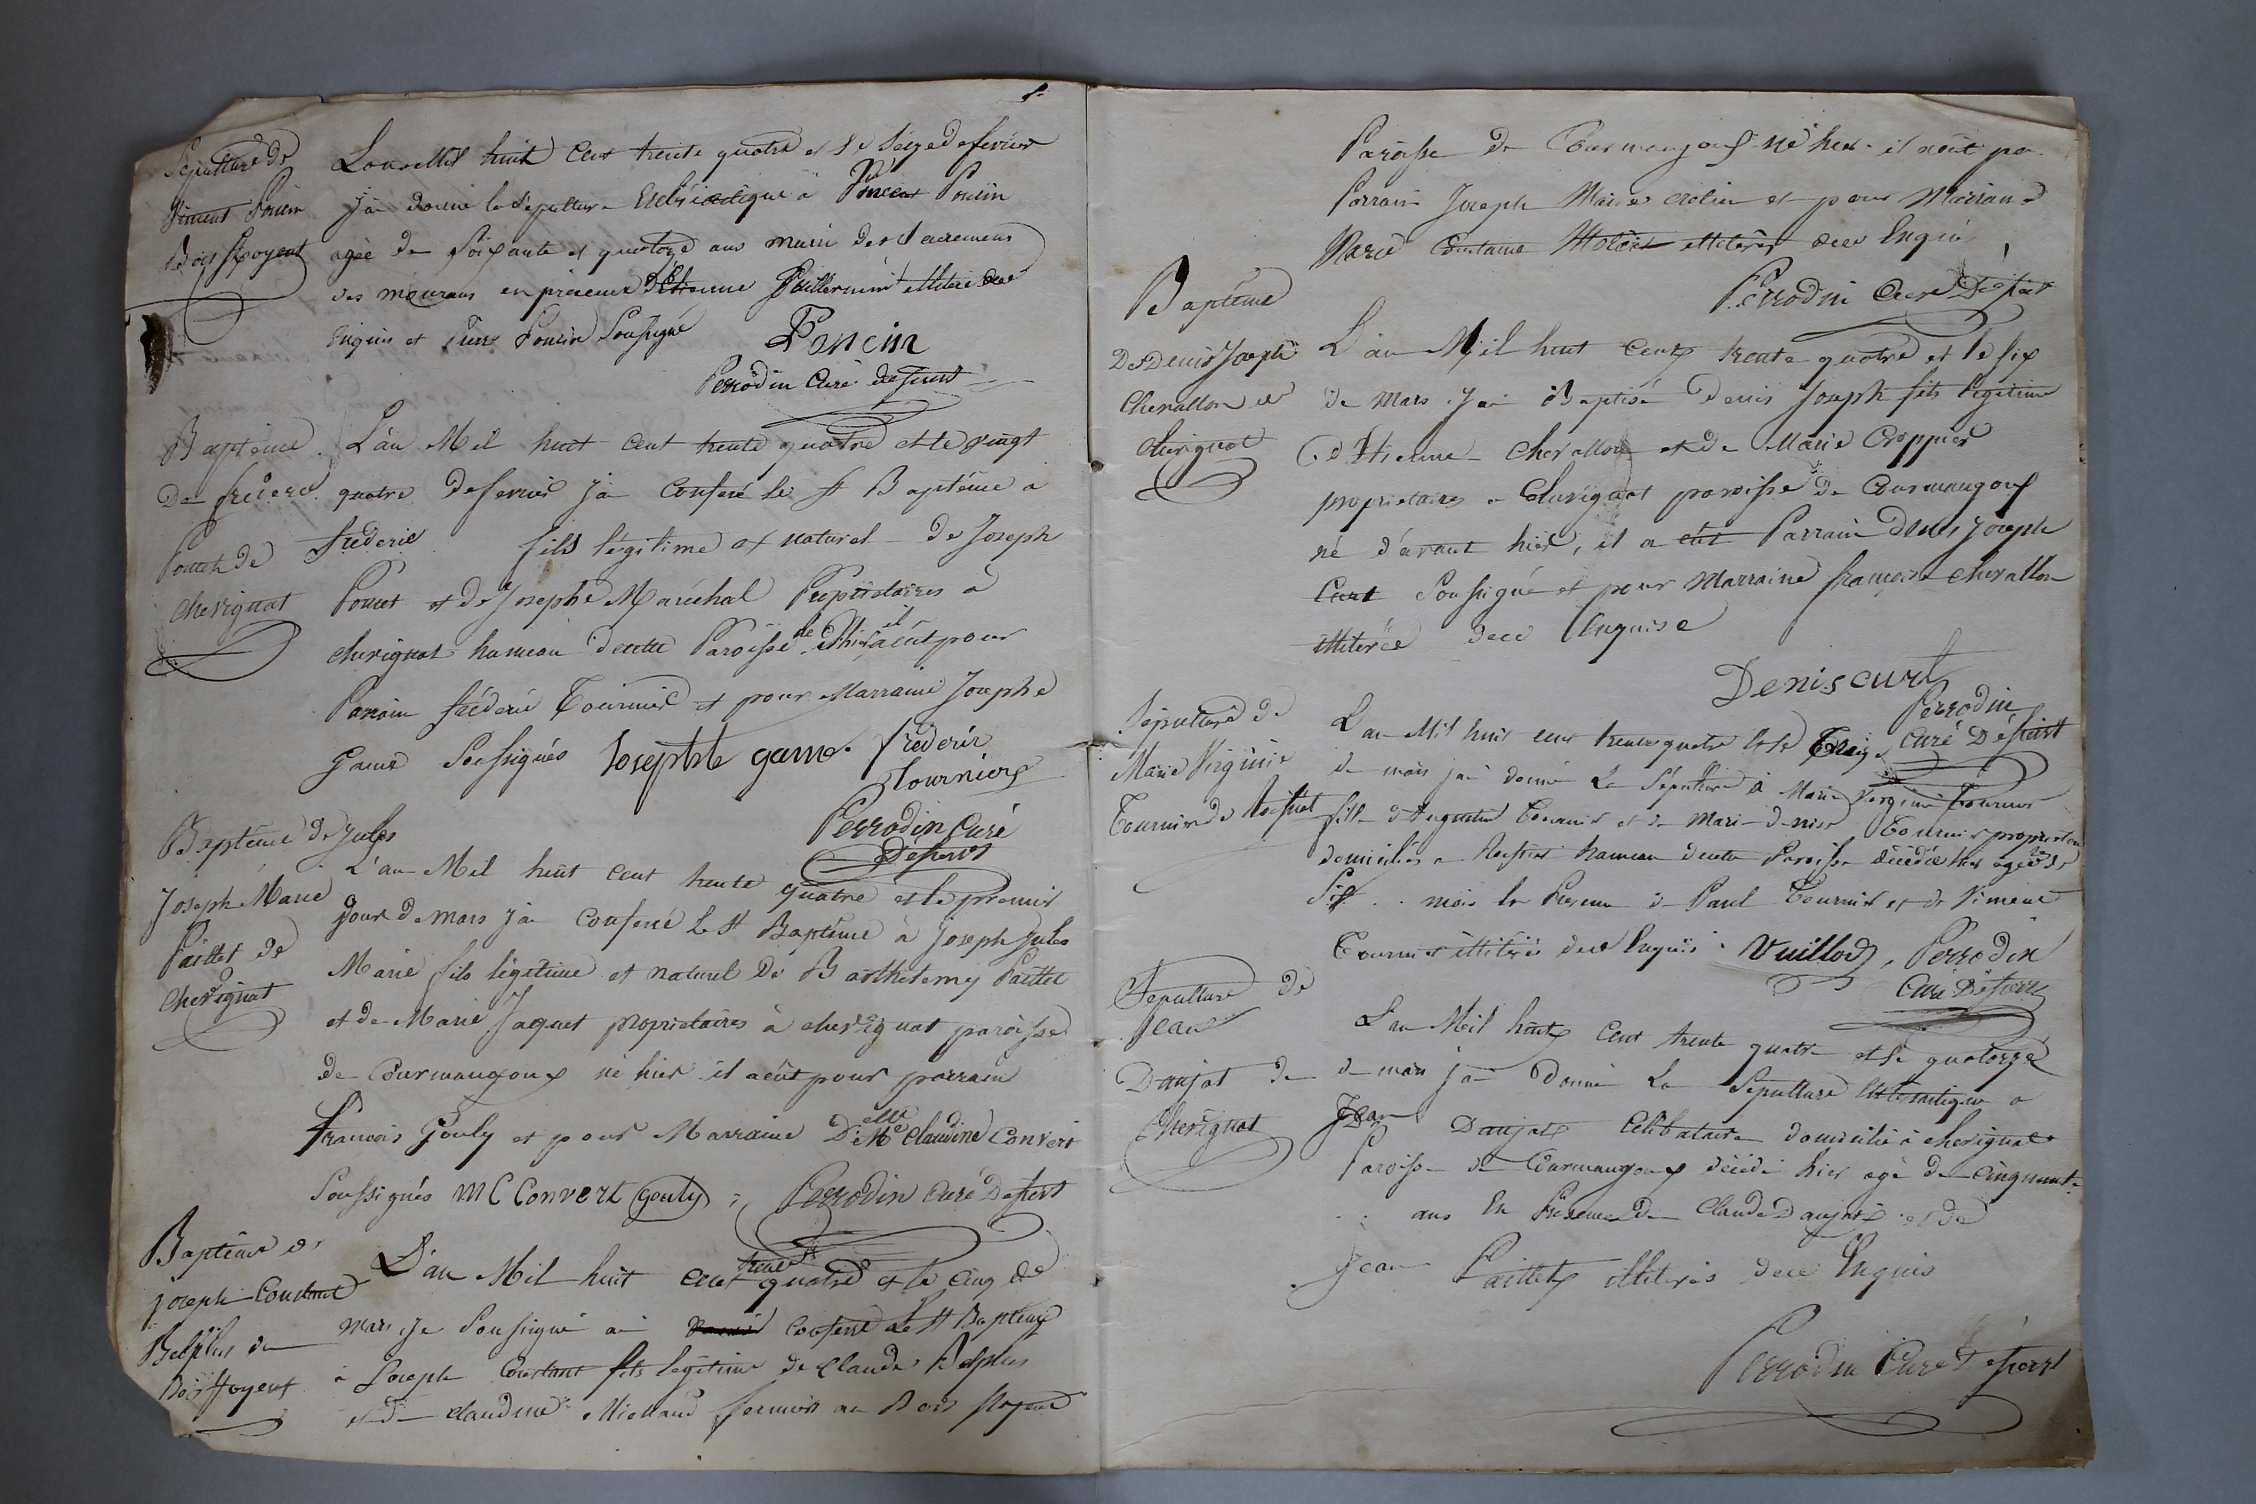 Sépulture de
Poncin
Bois Stoyent
L'an Mil huit Cent trente quatre et le Seize de fevrier
J'ai donné la Sépulture Eclésiastique à Poncin
agée de Soixante et quatorze ans muni des Sacremens
des mourans en présence d'Etienne illitéré de
enquis et Pierre Poncin Soussigné
Poncin
Perrodin Curé desserv
Baptême
De frederic
Poncet de
Cherignat
L'an Mil huit Cent trente quatre et le vingt
quatre de fevrier J'ai Conferé le St Baptême à
frederic fils légitime et naturel de Joseph
Poncet et de Josephe Maréchal Propriétaires à
cherignat hameau de cette Paroisse né hier il a eût pour
Parrain fréderic Tournier et pour Marraine Josephe
Game Soussignés Josephte game frederic
Tournier
Perrodin Curé
Desserv
Baptême de Jules
Joseph Marie
Paillet de
Cherignat
L'an Mil huit Cent trente quatre et le premier
jour de Mars J'ai Conferé le St Baptême à Joseph Jules
Marie fils légitime et naturel De Barthelemy Paillet
et de Marie Jaquet propriétaires à cherignat paroisse
de Courmangoux né hier il a eût pour parrain
francois Gouly et pour Marraine Delle Claudine Convert
Soussignés M C Convert Gouly Perrodin Curé Desservt
Baptême de
joseph Constant
Belplus de
Bois Stoyent
L'an Mil huit cent trente quatre et le Cinq de
mars je Soussigné ai Conferé Le St Baptême
à Joseph Constant fils légitime de Claude Belplus
et de claudine fermiers au Bois Stoyent
Paroisse de Courmangoux né hier il a eût po
Parrain Joseph Marie et pour Marraine
Marie Constance illiterés de ce Enquis
Perrodin Curé Desser
Baptême
De Denis Joseph
Chevallon de
cherignat
L'an Mil huit Cent trente quatre et le six
de Mars J'ai Baptisé Denis Joseph fils légitime
d'Etienne Chevallon et de Marie Croppier
propriétaires à Cherignat paroisse de Courmangoux
né d'avant hier, il a eût Parrain Denis Joseph
Curt Soussigné et pour Marraine françoise chevallon
illiterée de ce Enquise
Denis curt
Perrodin
Curé Desservt
Sépulture de
Marie Virginie
Tournier de
L'an Mil huit cent trente quatre et le Treize
de mars j'ai donné La Sépulture à Marie Virginie Tournier
fille d'Augustin Tournier et de Marie denise Tournier proprietaires
domiciliés à hameau de cette Paroisse décédée hier agée de
Six mois En Présence de Paul Tournier et de Viment
Tournier illiterés de ce Enquis Vuillod, Perrodin
Curé Desserv
Sepulture de
Jean
Daujat de
Cherignat
L'an Mil huit Cent trente quatre et le quatorze
de mars j'ai Donné La Sepulture Eclesiastique à
Jean Daujat Célibataire domicilié à cherignat
Paroisse de Courmangoux décédé hier agé de Cinquante
ans En Présence de Claude Daujat et de
Jean Paillet illiterés de ce Enquis
Perrodin Curé Desservt